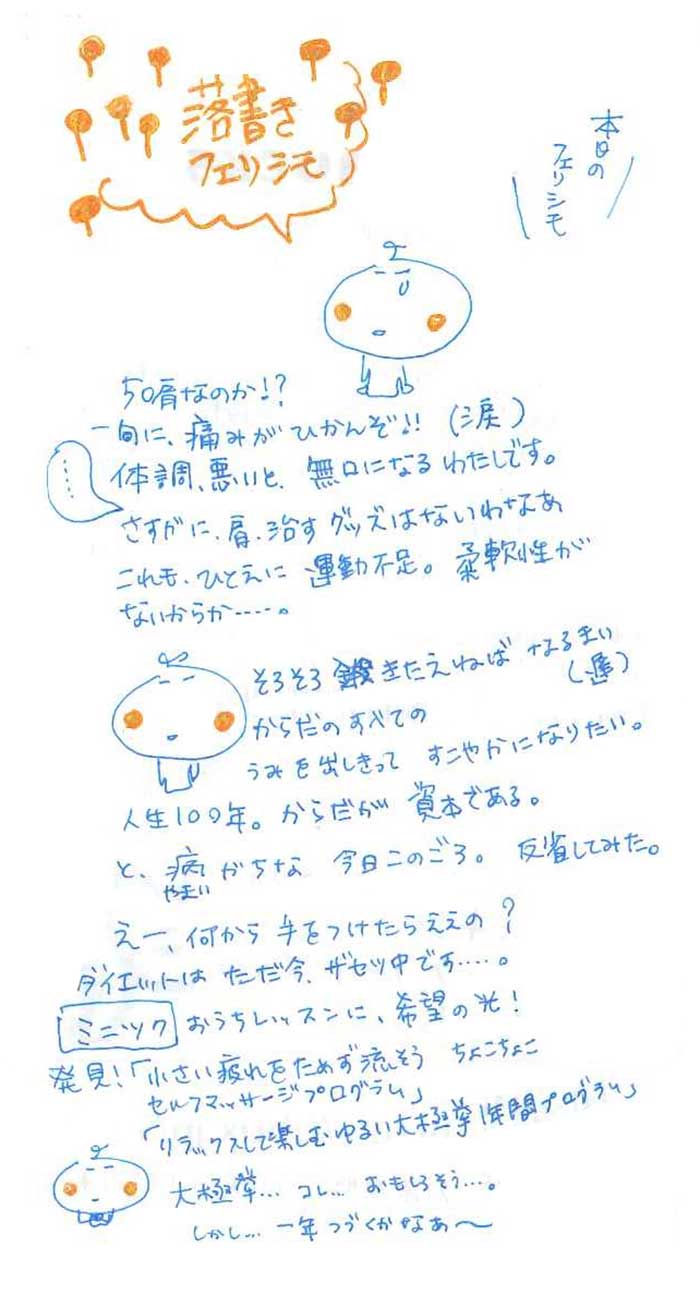 落書き
フェリシモ
本日の
フェリシモ
50肩なのか!?
一向に、痛みがひかんぞ!! (涙)
体調、悪いと、無口になるわたしです。
……
さすがに、肩、治すグッズはないわなあ
これも、ひとえに運動不足。柔軟性が
ないからか……。
そろそろ きたえねば なるまい
(遅)
からだのすべての
うみを出しきって すこやかになりたい。
人生100年。からだが 資本である。
と、病がちな 今日このごろ。 反省してみた。
やまい
えー、何から手をつけたらええの?
ダイエットは ただ今、ザセツ中です……。
ミニツク おうちレッスンに、希望の光!
発見!「小さい疲れをためず流そう ちょこちょこ
セルフマッサージプログラム」
「リラックスして楽しむゆるい太極拳1年間プログラム」
太極拳… コレ… おもしろそう…。
しかし… 一年つづくかなあ〜